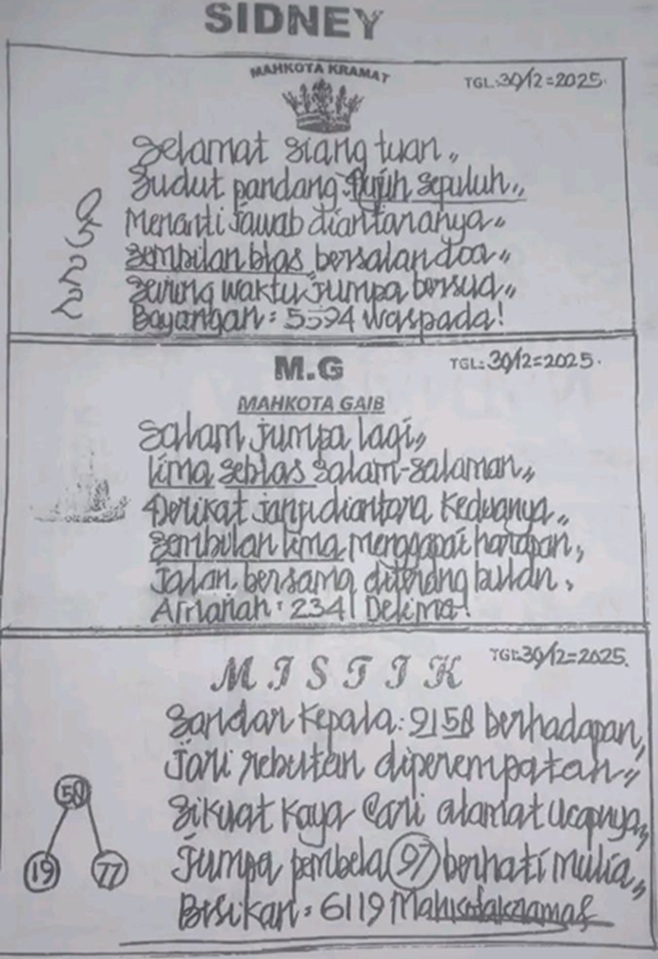 SIDNEY
MAHKOTA KRAMAT
TGL:30/12=2025.
Selamat siang tuan,,
Sudut pandang Tujuh sepuluh,,
Menanti jawab diantaranya,,
Sembilan blas bersalan doa,,
Seiring waktu jumpa bersua,,
Bayangan: 5594 waspada!
0
5
2
2
M.G
TGL:30/12=2025.
MAHKOTA GAIB
Salam jumpa lagi,,
Lima seblas salam-salaman,,
Terikat janji diantara Keduanya,,
Sembilan lima menggapai harapan,
Jalan bersama diterang bulan,
Amanah: 2341 Delima!
MISTIK
TGL:30/12=2025.
Sandar Kepala: 9158 berhadapan,
Jari rebutan diperempatan,,
Sikuat Kaya Cari alamat Ucapnya,,
Jumpa pembela 97 berhati Mulia,,
Bisikan: 6119 Mahkotakramat
50
19 77